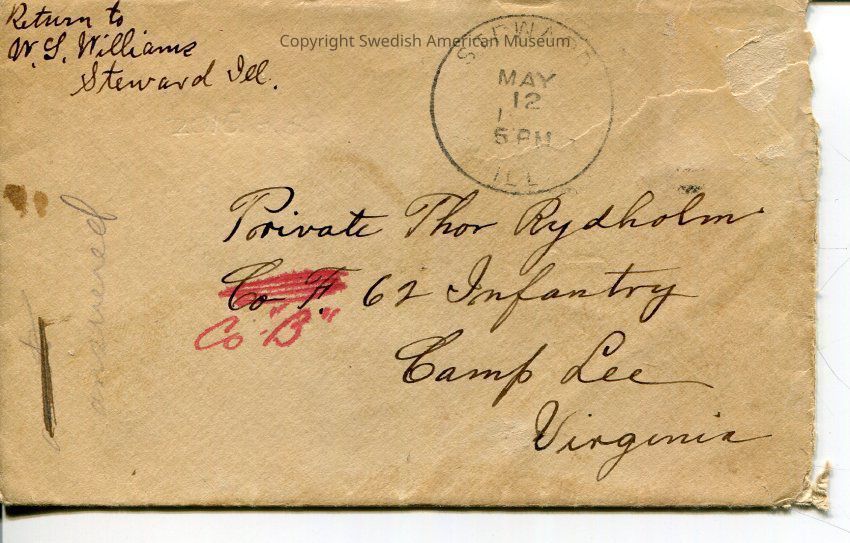 Return to
W. S. Williams
Steward Ill.
Copyright Swedish American Museum
STEWARD
MAY
12
5 PM
ILL.
Private Thor Rydholm
Co F. 62 Infantry
Co "B"
Camp Lee
Virginia
answered